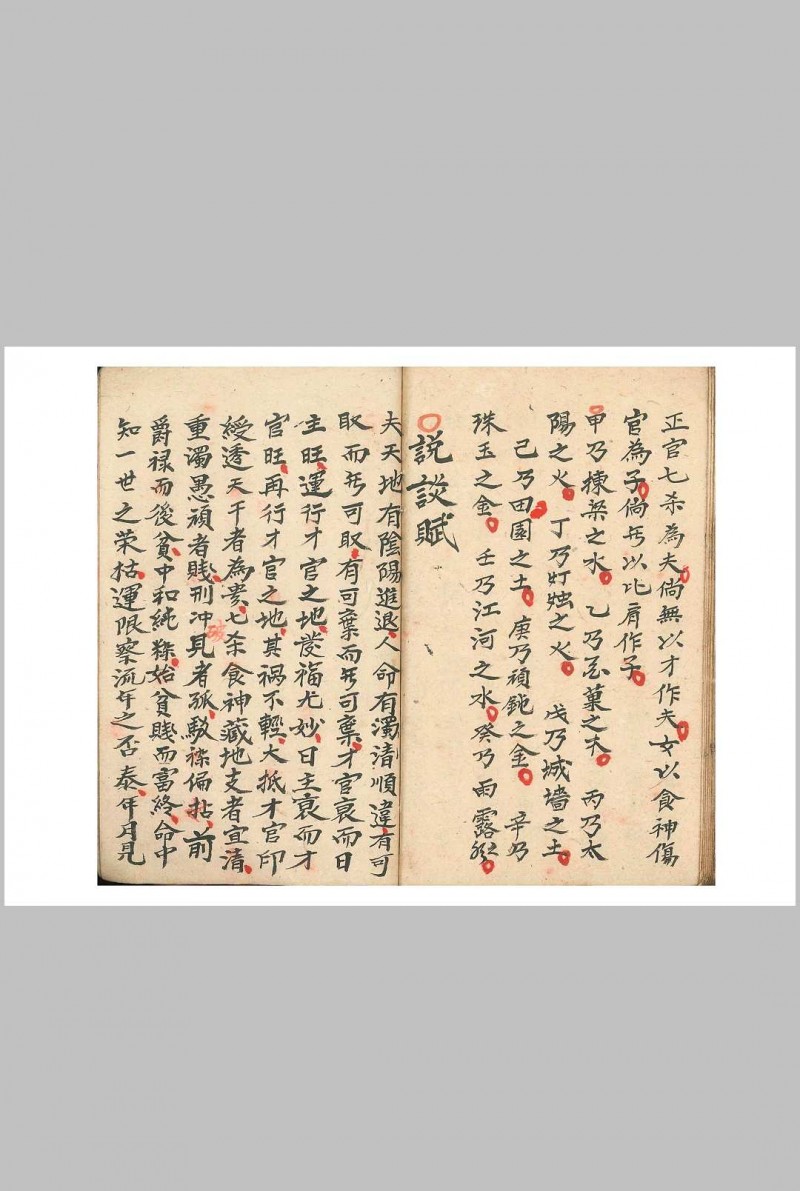 正官七杀為夫倘無以才作夫女以食神傷
官為子倘旡以比肩作子
甲乃棟梁之水 乙乃花菓之木 丙乃太
陽之火 丁乃灯烛之火 戊乃城墻之土
己乃田園之土 庚乃頑鈍之金 辛乃
珠玉之金 壬乃江河之水 癸乃雨露
説談賦
夫天地有陰陽進退人命有濁清順違有可
取而旡可取有可棄而旡可棄才官衰而日
主旺運行才官之地發福尤妙日主衰而才
官旺再行才官之地其祸不輕大抵才官印
綬透天干者為贵七杀食神藏地支者宜清
重濁愚頑者賎刑冲見者孤駁襍偏拈前
破
爵禄而後貧中和純粹始貧賎而富終命中
知一世之荣枯運限察流年之否泰年月見